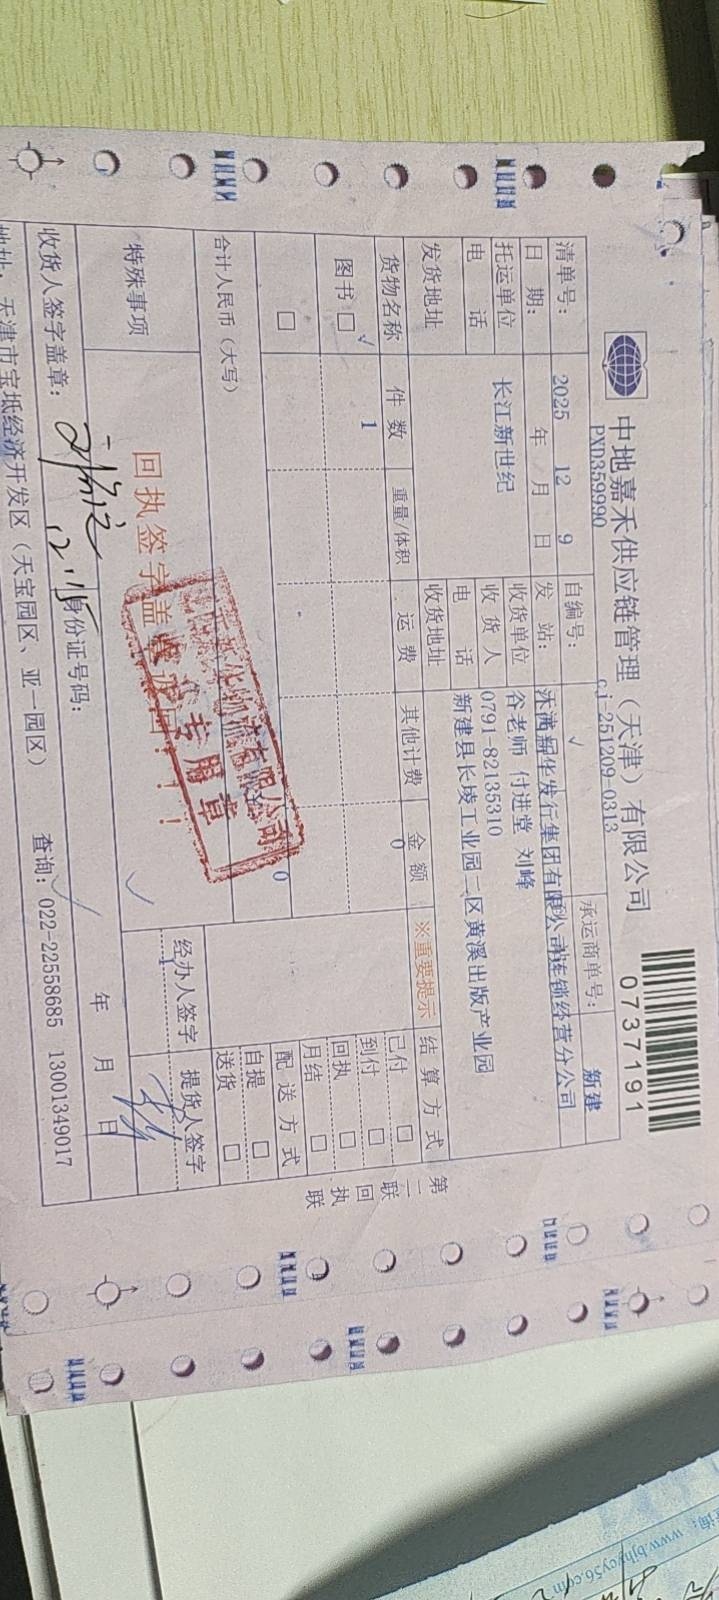 中地嘉禾供应链管理（天津）有限公司
0737191
清单号：
PXD359990
自编号：
cj-251209-0313
承运商单号：
日 期：
2025 年 12 月 9 日
发 站：
新建
托运单位
长江新世纪
收货单位
新华发行集团有限公司连锁经营分公司
电 话
收 货 人
谷老师 付进堂 刘峰
发货地址
电 话
0791-82135310
收货地址
新建县长堎工业园二区黄溪出版产业园
货物名称 件 数 重量/体积 运 费 其他计费 金 额 ※重要提示 结 算 方 式
图书 □ √ 1 0
已付 □
到付 □
回执 □
月结 □
□
配 送 方 式
自提 □
送货 □
合计人民币（大写）
0
特殊事项
回执签字盖
专用章
经办人签字
提货人签字
收货人签字盖章：
身份证号码：
年 月 日
地址：天津市宝坻经济开发区（天宝园区、亚一园区）
查询：022-22558685 13001349017
第二联 回执联
www.bjhycy56.com